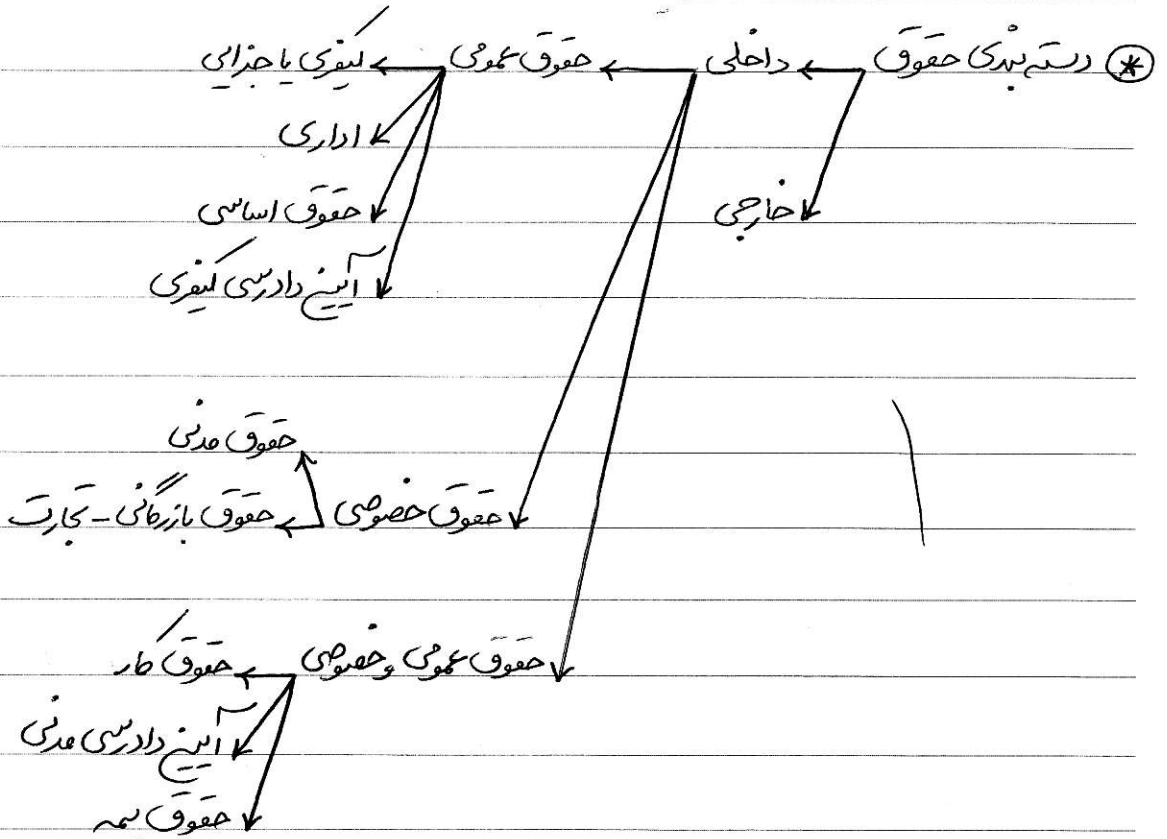 * دسته بندی حقوق ← داخلی ← حقوق عمومی ← کیفری یا جزایی
اداری
خارجی حقوق اساسی
آیین دادرسی کیفری
حقوق مدنی
حقوق خصوصی ← حقوق بازرگانی - تجارت
حقوق عمومی و خصوصی ← حقوق کار
آیین دادرسی مدنی
حقوق بیمه